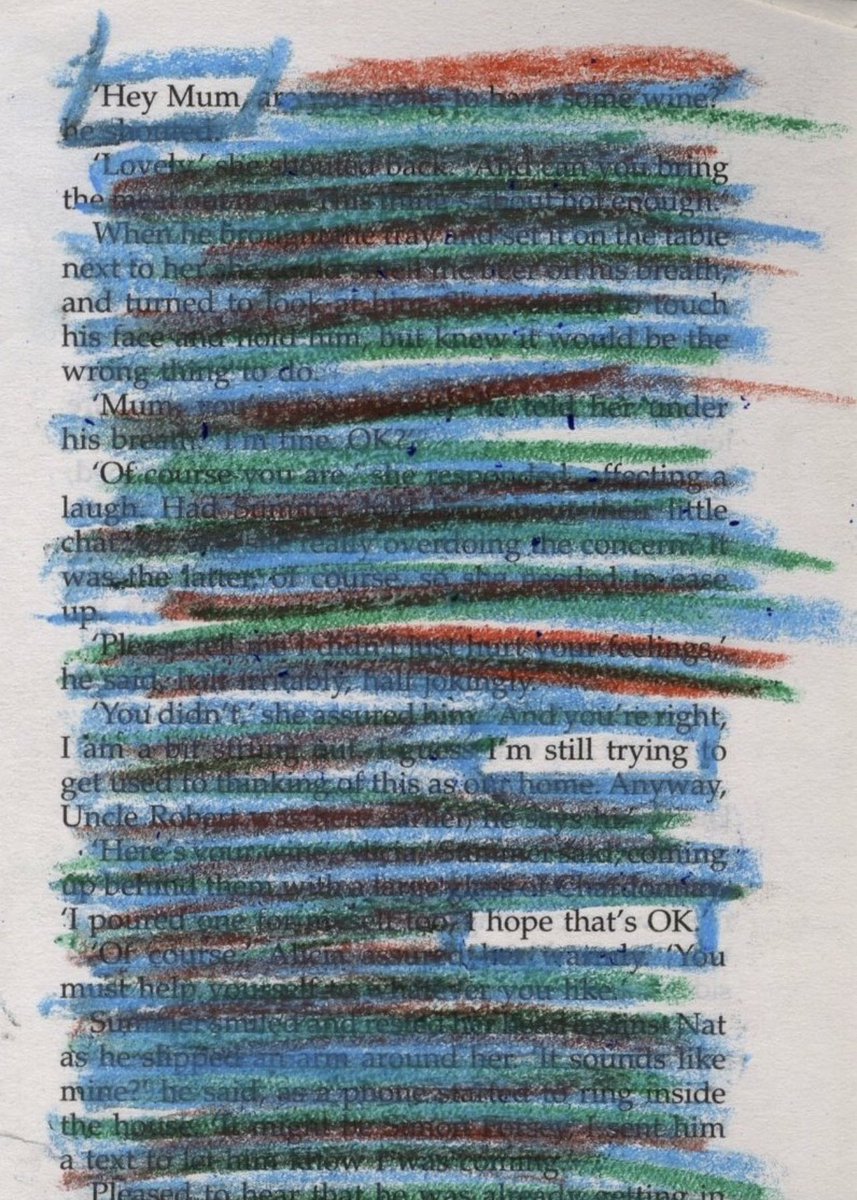 'Hey Mum, are you going to have some wine?'
he shouted.
'Lovely,' she shouted back. 'And can you bring
the meat out now? This thing's about hot enough.'
When he brought the tray and set it on the table
next to her she could smell the beer on his breath,
and turned to look at him. She wanted to touch
his face and hold him, but knew it would be the
wrong thing to do.
'Mum, you're he told her under
his breath. 'I'm fine, OK?'
'Of course you are,' she responded, affecting a
laugh. Had Summer their little
chat? really overdoing the concern? It
was the latter, of course, so she needed to ease
up.
'Please tell me I didn't just hurt your feelings,'
he said, half irritably, half jokingly.
'You didn't,' she assured him. 'And you're right,
I am a bit strung out. I guess I'm still trying to
get used to thinking of this as our home. Anyway,
Uncle Robert was here earlier, he says hi.'
'Here's your wine, Alicia,' Summer said, coming
up behind them with a large glass of Chardonnay.
'I poured one for myself too, I hope that's OK.'
'Of course,' Alicia assured her warmly. 'You
must help yourself to whatever you like.'
Summer smiled and rested her head against Nat
as he slipped an arm around her. 'It sounds like
mine?' he said, as a phone started to ring inside
the house. 'It might be Simon Forsey, I sent him
a text to let him know I was coming.'
Pleased to hear that he was already getting in